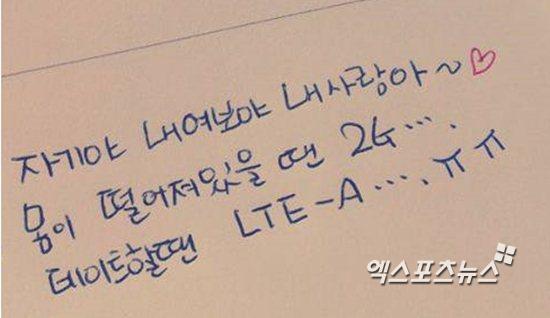 자기야 내여보야 내사랑아~♡
몸이 떨어져있을 땐 2G....
데이트할땐 LTE-A....ㅠㅠ
엑스포츠뉴스